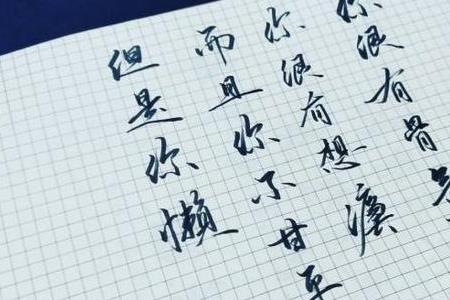 你很有骨
你很有想
而且你不甘平
但是你懒